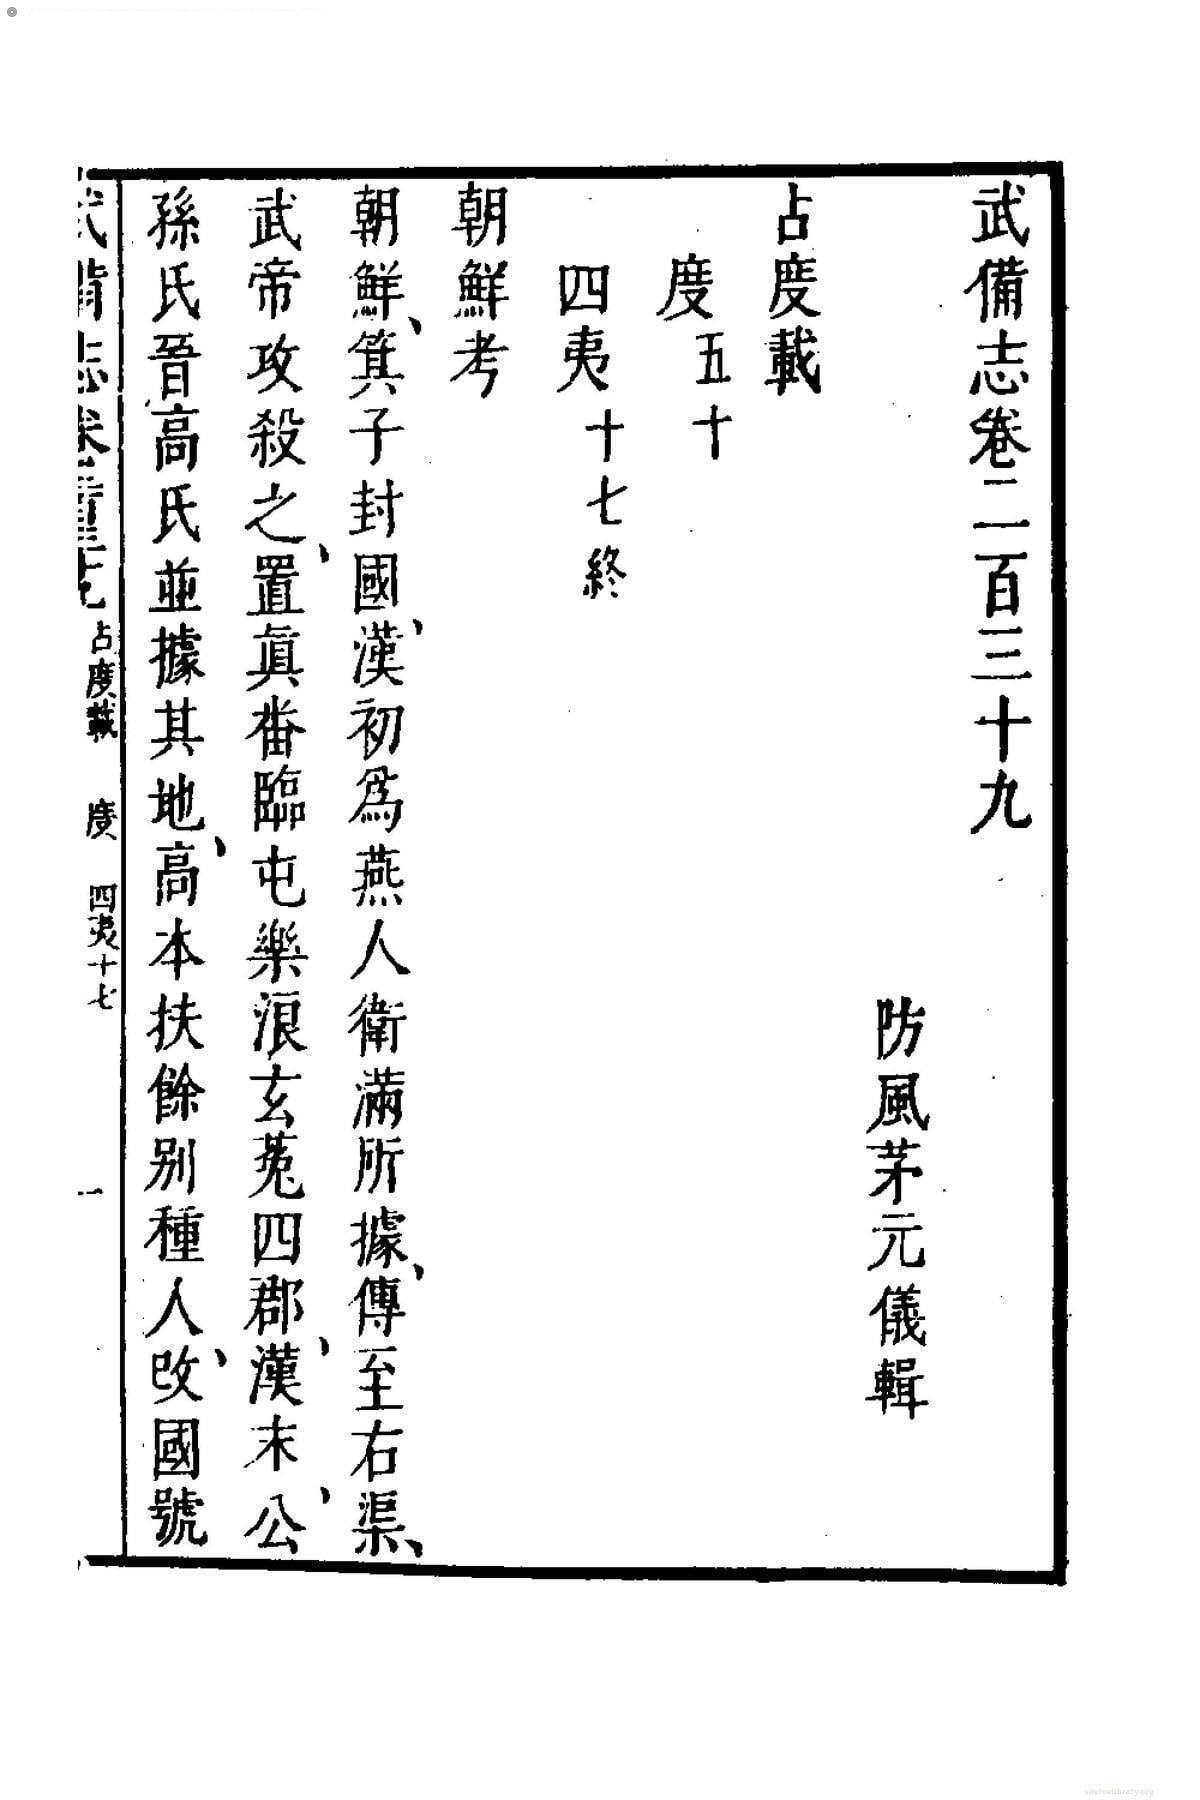 武備志卷二百三十九
防風茅元儀輯
占度載
度五十
四夷十七終
朝鮮考
朝鮮、箕子封國、漢初爲燕人衛滿所據、傳至右渠、
武帝攻殺之、置眞番臨屯樂浪玄菟四郡、漢末、公
孫氏晉高氏並據其地、高本扶餘别種人、改國號
武備志卷 占度載 度 四夷十七 一
sourcelibrary.org